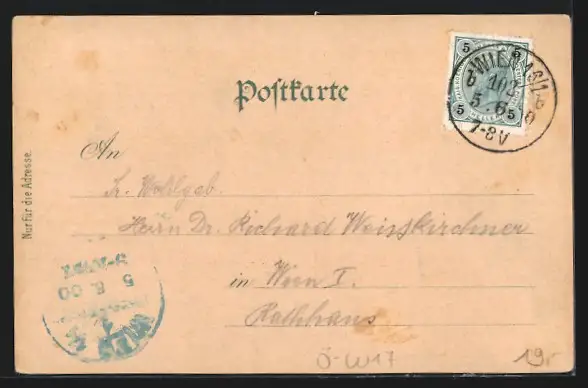 5 5
5 5
WIEN 16/1
5 . 6
7-8V
Postkarte
An
Sr. Wohlgeb.
Herrn Dr. Richard Weisskirchner
in Wien I.
Rathhaus
Nur für die Adresse.
WIEN
5 6 00
Ö-W17
19,-